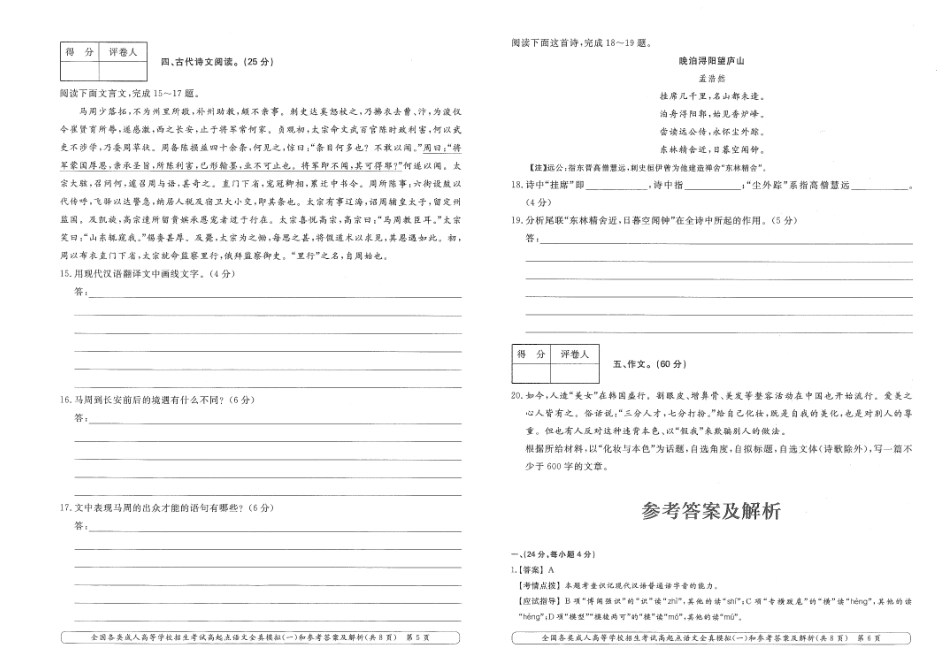 得 分 评卷人
四、古代诗文阅读。(25 分)
阅读下面文言文,完成 15～17 题。
马周少落拓,不为州里所敬,补州助教,颇不亲事。刺史达奚恕杖之,乃拂衣去曹、汴,为浚仪
令崔贤育所辱,遂感激,西之长安,止于将军常何家。贞观初,太宗命文武百官陈时政利害,何以武
吏不涉学,乃委周草状。周备陈损益四十余条,何见之,惊曰:“条目何多也?不敢以闻。”周曰:“将
军蒙国厚恩,亲承圣旨,所陈利害,已形翰墨,业不可止也。将军即不闻,其可得耶?”何遂以闻。太
宗大骇,召问何,遽召周与语,甚奇之。直门下省,宠冠卿相,累迁中书令。周所陈事:六街设鼓以
代传呼,飞驿以达警急,纳居人税及宿卫大小交,即其条也。太宗有事辽海,诏周辅皇太子,留定州
监国。及凯旋,高宗遣所留贵嫔承恩宠者迓于行在。太宗喜悦高宗,高宗曰:“马周教臣耳。”太宗
笑曰:“山东辄窥我。”锡赉甚厚。及薨,太宗为之恸,每思之甚,将假道术以求见,其恩遇如此。初,
周以布衣直门下省,太宗就命监察里行,俄拜监察御史。“里行”之名,自周始也。
15. 用现代汉语翻译文中画线文字。(4 分)
答:
16. 马周到长安前后的境遇有什么不同?(6 分)
答:
17. 文中表现马周的出众才能的语句有哪些?(6 分)
答:
全国各类成人高等学校招生考试高起点语文全真模拟(一)和参考答案及解析(共 8 页) 第 5 页
阅读下面这首诗,完成 18～19 题。
晚泊浔阳望庐山
孟浩然
挂席几千里,名山都未逢。
泊舟浔阳郭,始见香炉峰。
尝读远公传,永怀尘外踪。
东林精舍近,日暮空闻钟。
【注】远公:指东晋高僧慧远,刺史桓伊曾为他建造禅舍“东林精舍”。
18. 诗中“挂席”即 ,诗中指 ;“尘外踪”系指高僧慧远 。
(4 分)
19. 分析尾联“东林精舍近,日暮空闻钟”在全诗中所起的作用。(5 分)
答:
得 分 评卷人
五、作文。(60 分)
20. 如今,人造“美女”在韩国盛行。割眼皮、增鼻骨、美发等整容活动在中国也开始流行。爱美之
心人皆有之。俗话说:“三分人才,七分打扮。”给自己化妆,既是自我的美化,也是对别人的尊
重。但也有人反对这种违背本色、以“假我”来欺骗别人的做法。
根据所给材料,以“化妆与本色”为话题,自选角度,自拟标题,自选文体(诗歌除外),写一篇不
少于 600 字的文章。
参考答案及解析
一、(24 分,每小题 4 分)
1.【答案】A
【考情点拨】本题考查识记现代汉语普通话字音的能力。
【应试指导】B 项“博闻强识”的“识”读“zhì”,其他的读“shí”;C 项“专横跋扈”的“横”读“hèng”,其他的读
“héng”;D 项“模型”“模棱两可”的“模”读“mó”,其他的读“mú”。
全国各类成人高等学校招生考试高起点语文全真模拟(一)和参考答案及解析(共 8 页) 第 6 页